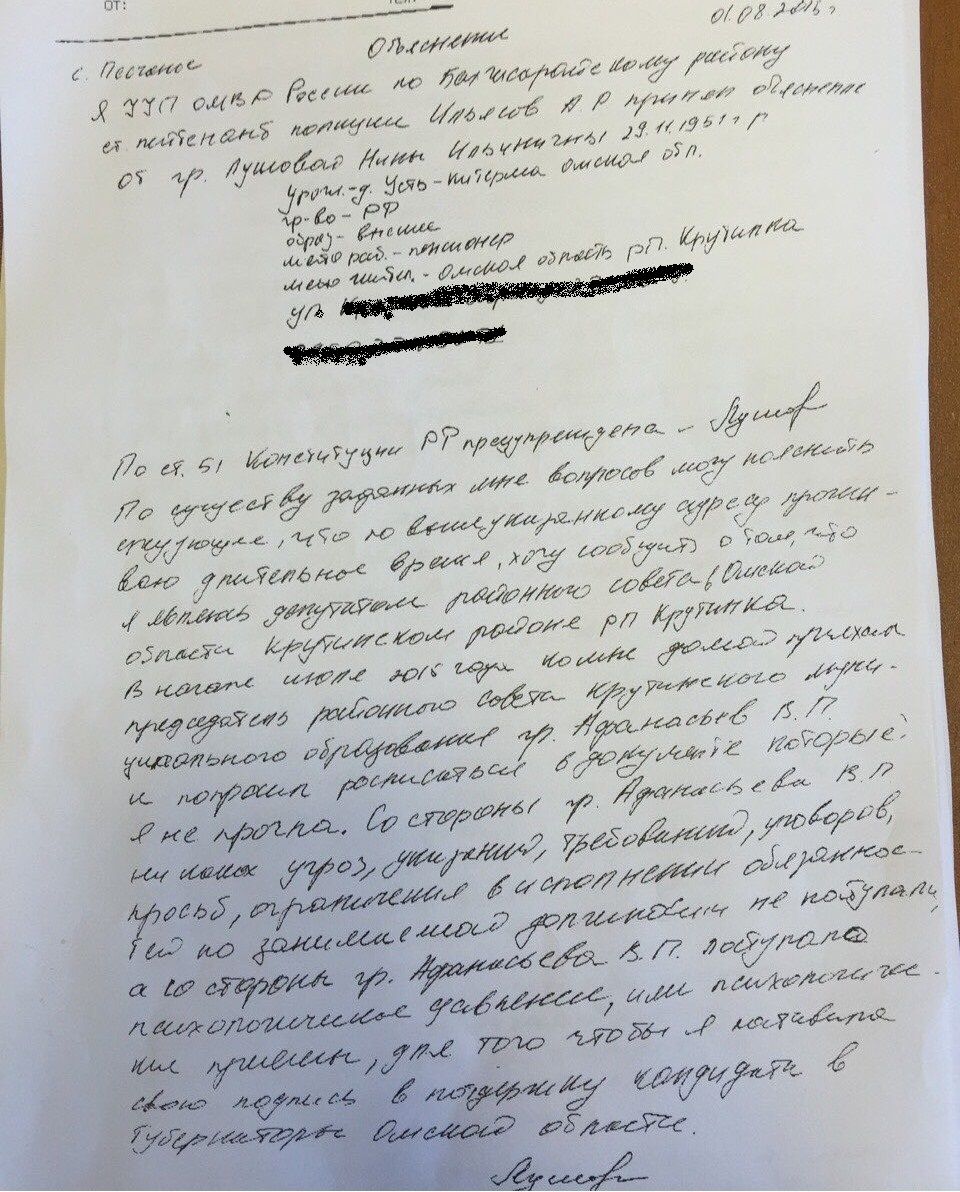 ОТ:
01.08.2015 г
Объяснение
с. Песчаное
Я УУП ОМВД России по Бахчисарайскому району
ст. лейтенант полиции Ильясов А.Р принял объяснение
от гр. Лушовой Нины Ильиничны 29.11.1951 г р
урож.-д. Усть-Китерма Омская обл.
гр-во - РФ
образ- высшее
место раб.- пенсионер
место жител.- Омская область рп. Крутинка
ул.
По ст. 51 Конституции РФ предупреждена -
По существу заданных мне вопросов могу пояснить
следующее, что по вышеуказанному адресу прожи-
ваю длительное время, хочу сообщить о том, что
я являюсь депутатом районного совета, Омской
области Крутинском районе рп Крутинка.
В начале июля 2015 года ко мне домой приехал
председатель районного совета Крутинского муни-
ципального образование гр. Афанасьев В. П.
и попросил расписаться в документе которые
я не прочла. Со стороны гр. Афанасьева В.П
ни каких угроз, указаний, требований, уговоров,
просьб, ограничения в исполнении обязаннос-
тей по занимаемой должности не поступали,
а со стороны гр. Афанасьева В. П. поступало
психологическое давление, или психологичес-
кие приемы, для того чтобы я поставила
свою подпись в поддержку кандидата в
Губернаторы Омской области.